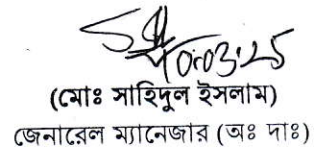 10.03.25
(মোঃ সাহিদুল ইসলাম)
জেনারেল ম্যানেজার (অঃ দাঃ)